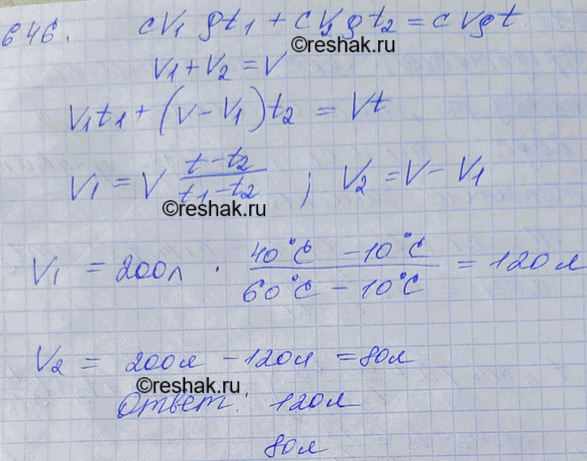 646. cV₁ρt₁ + cV₂ρt₂ = cVρt
©reshak.ru
V₁ + V₂ = V
V₁t₁ + (V - V₁)t₂ = Vt
V₁ = V (t - t₂)/(t₁ - t₂) ; V₂ = V - V₁
©reshak.ru
V₁ = 200л · (40°C - 10°C)/(60°C - 10°C) = 120л
V₂ = 200л - 120л = 80л
©reshak.ru
Ответ: 120л
80л